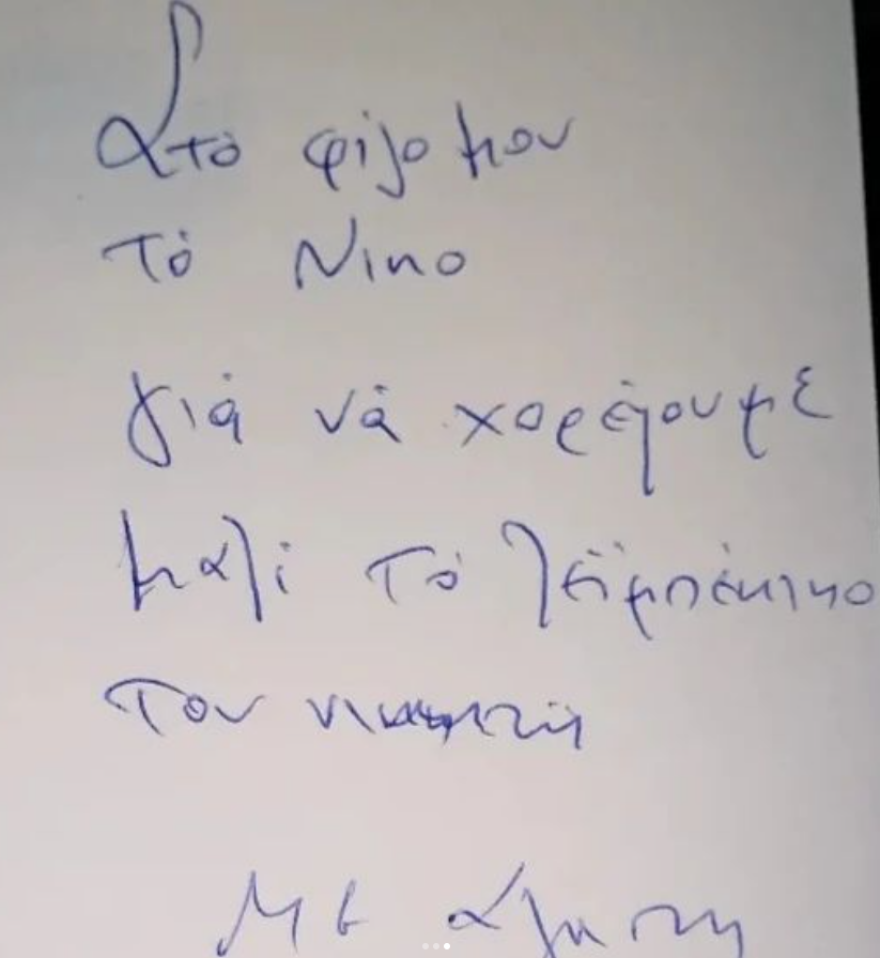 Στο φίλο μου
Τό Νίκο
για νά χορέψουμε
μαζί Τό ζεϊμπέκικο
Του νικητή
Με αγάπη